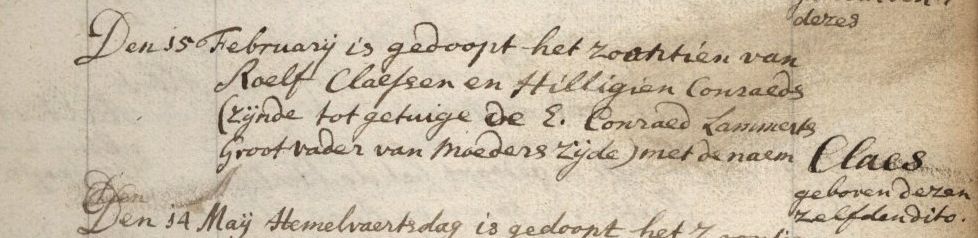 dezes
Den 15 February is gedoopt het zoontien van
Roelf Claessen en Hilligien Conraeds
(zijnde tot getuige de E. Conraed Lammerts
Grootvader van Moeders Zijde) met de naem Claes
geboren dezen
zelfden dito.
Den 14 Maij Hemelvaertsdag is gedoopt het